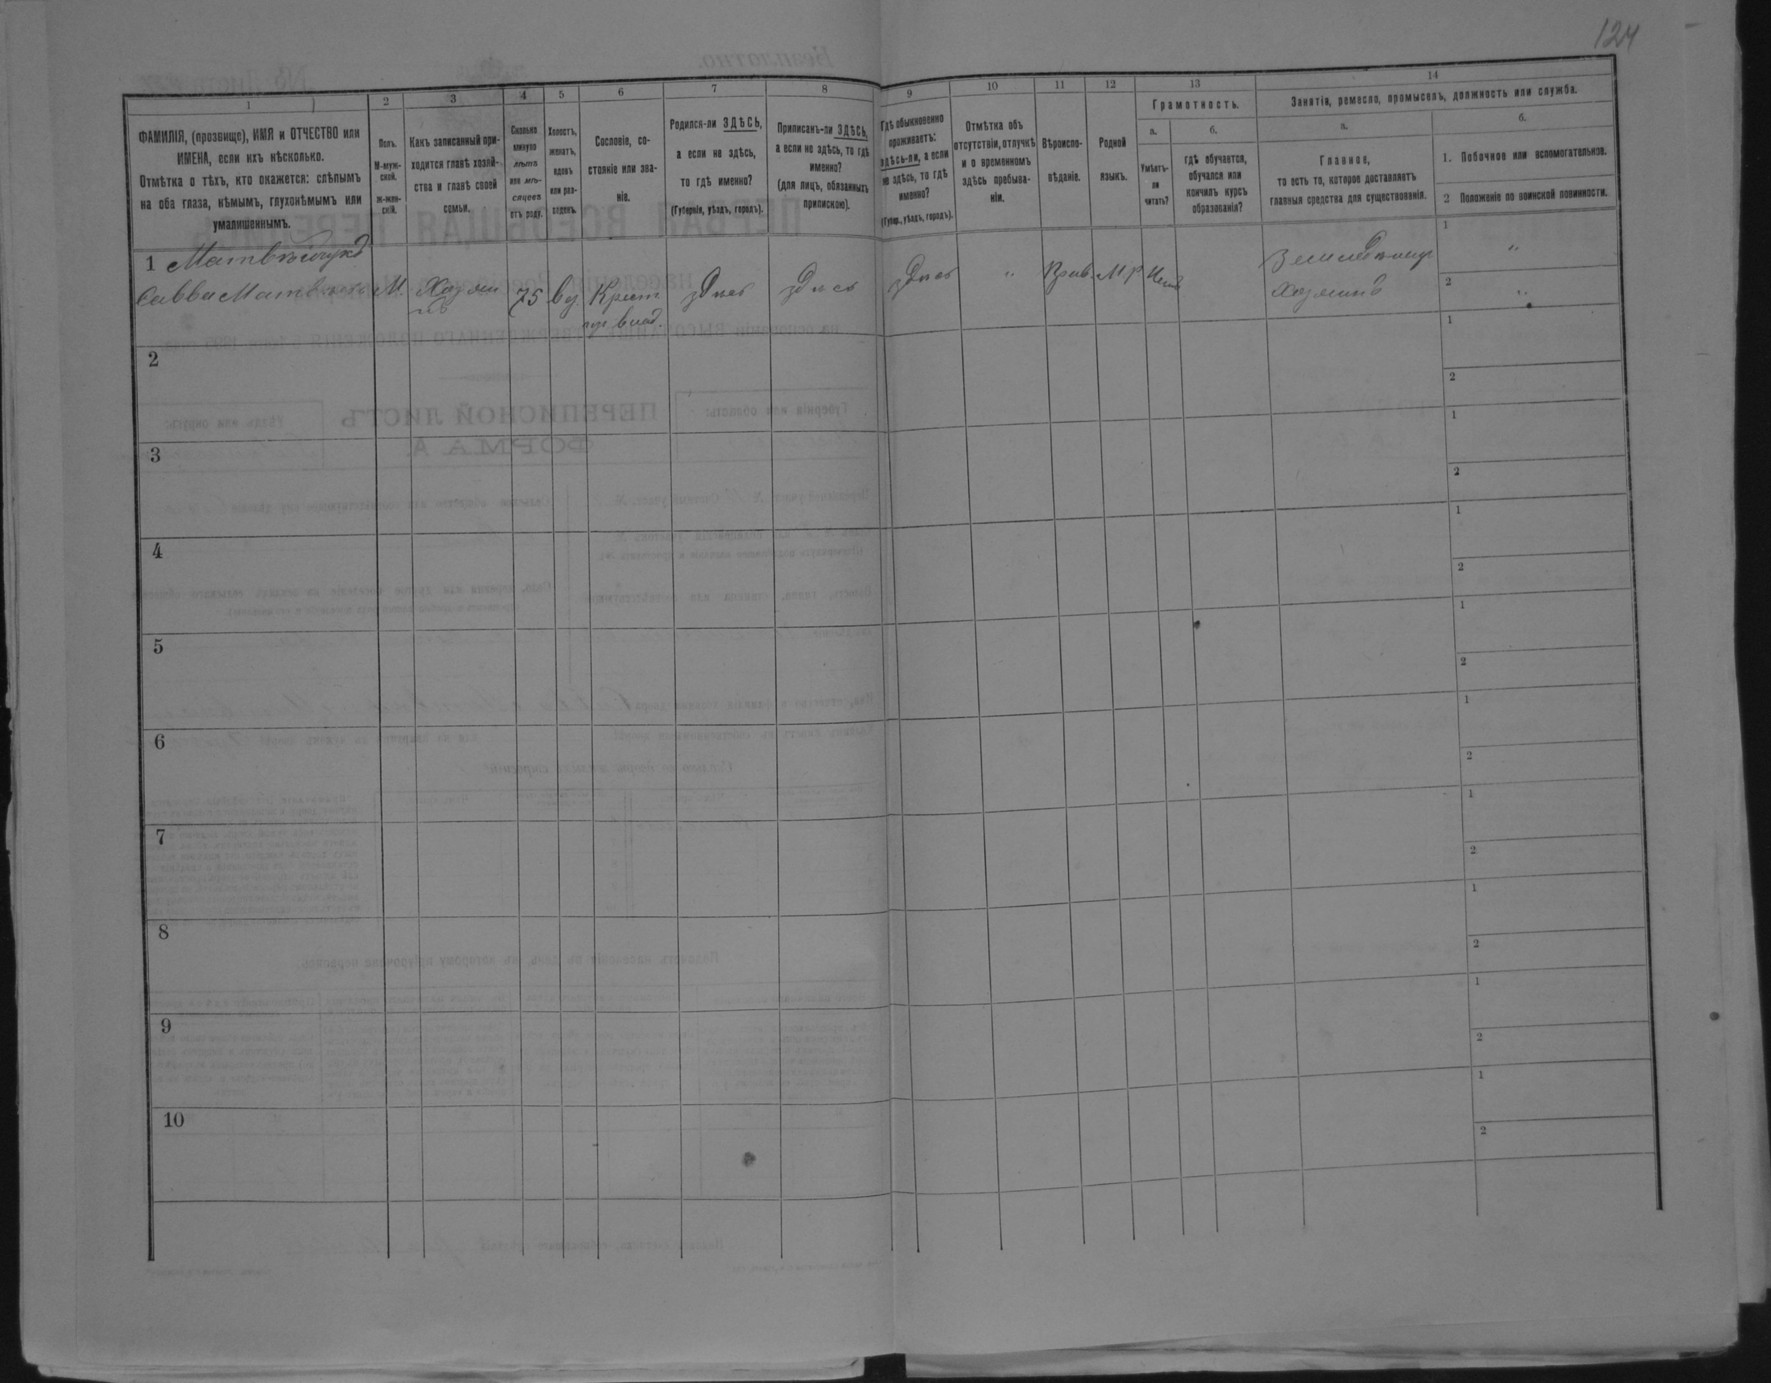 124
1
ФАМИЛІЯ, (прозвище), ИМЯ и ОТЧЕСТВО или
ИМЕНА, если ихъ нѣсколько.
Отмѣтка о тѣхъ, кто окажется: слѣпымъ
на оба глаза, нѣмымъ, глухонѣмымъ или
умалишеннымъ.
2
Полъ.
М-муж-
ской.
Ж-жен-
скій.
3
Какъ записанный при-
ходится главѣ хозяй-
ства и главѣ своей
семьи.
4
Сколько
минуло
лѣтъ
или мѣ-
сяцевъ
отъ роду.
5
Холостъ,
женатъ,
вдовъ
или раз-
веденъ.
6
Сословіе, со-
стояніе или зва-
ніе.
7
Родился-ли ЗДѢСЬ,
а если не здѣсь,
то гдѣ именно?
(Губернія, уѣздъ, городъ).
8
Приписанъ-ли ЗДѢСЬ,
а если не здѣсь, то гдѣ
именно?
(для лицъ, обязанныхъ
припискою).
9
Гдѣ обыкновенно
проживаетъ:
здѣсь-ли, а если
не здѣсь, то гдѣ
именно?
(Губер., уѣздъ, городъ).
10
Отмѣтка объ
отсутствіи, отлучкѣ
и о временномъ
здѣсь пребыва-
ніи.
11
Вѣроиспо-
вѣданіе.
12
Родной
языкъ.
13
Грамотность.
а.
Умѣетъ-
ли
читать?
б.
гдѣ обучается,
обучался или
кончилъ курсъ
образованія?
14
Занятіе, ремесло, промыселъ, должность или служба.
а.
Главное,
то есть то, которое доставляетъ
главныя средства для существованія.
б.
1. Побочное или вспомогательное.
2 Положеніе по воинской повинности.
1 Матвѣйчукъ
Савва Матвѣевъ М. Хозяи
нъ 75 вд Крест
влад. здѣсь здѣсь здѣсь " Прав. М Р Нетъ
Земледѣлец
Хозяинъ
1 "
2 "
2
1
2
3
1
2
4
1
2
5
1
2
6
1
2
7
1
2
8
1
2
9
1
2
10
1
2